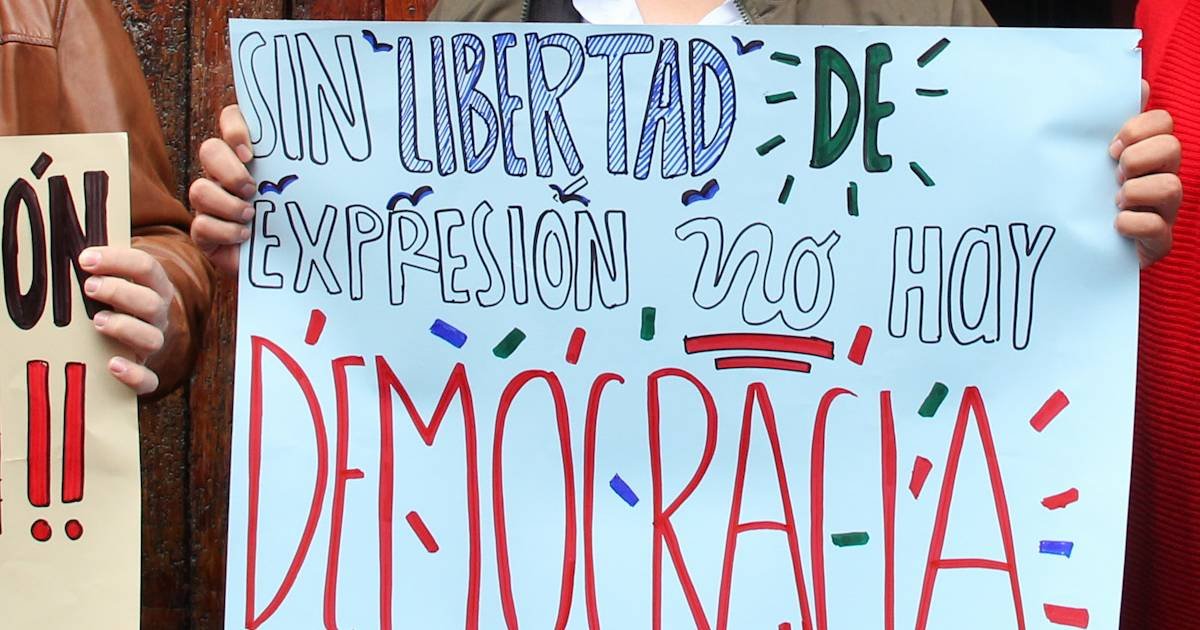 SIN LIBERTAD DE
EXPRESIÓN no HaY
DEMOCRACIA
ÓN
!!